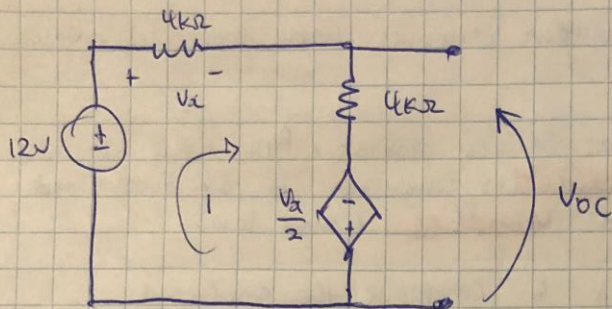 4kΩ
+ -
Vx
4kΩ
12V
+
-
1
Vx
2
-
+
VOC